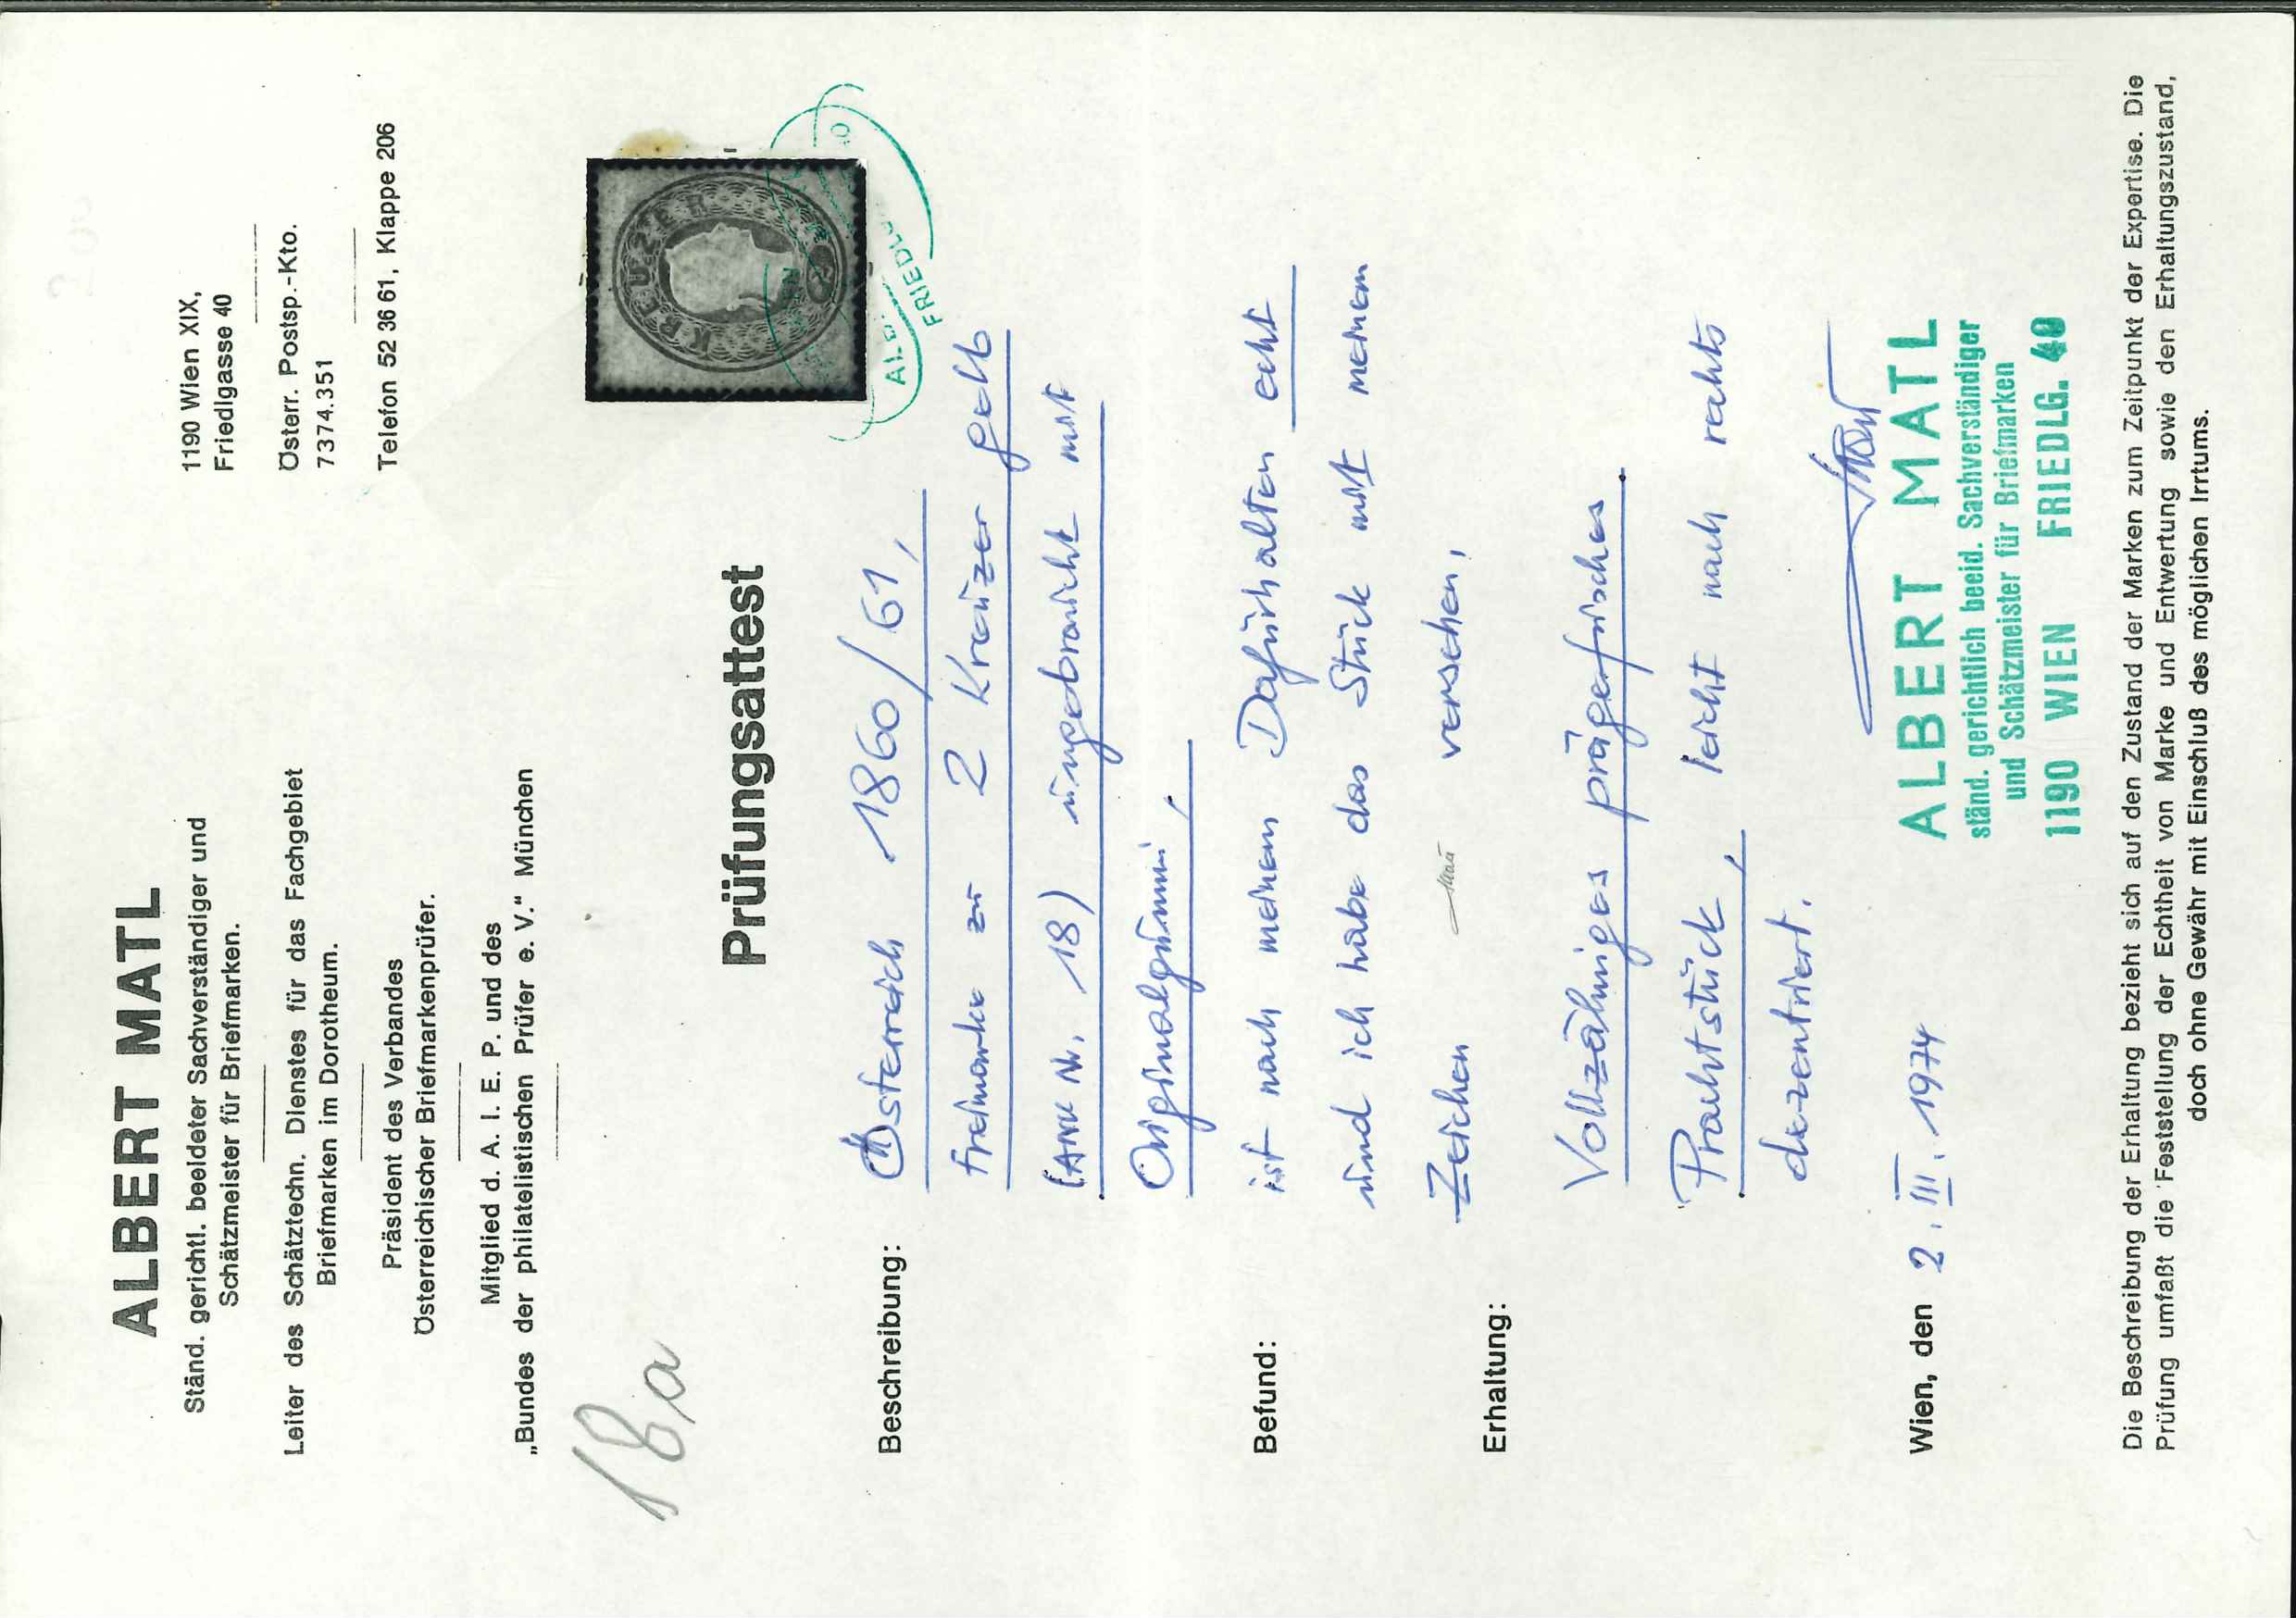 ALBERT MATL
Ständ. gerichtl. beeideter Sachverständiger und
Schätzmeister für Briefmarken.
Leiter des Schätztechn. Dienstes für das Fachgebiet
Briefmarken im Dorotheum.
Präsident des Verbandes
Österreichischer Briefmarkenprüfer.
Mitglied d. A. I. E. P. und des
„Bundes der philatelistischen Prüfer e. V." München
1190 Wien XIX,
Friedlgasse 40
Österr. Postsp.-Kto.
7374.351
Telefon 52 36 61, Klappe 206
18a
Prüfungsattest
KREUZER
2
Beschreibung: Österreich 1860/61,
Freimarke zu 2 Kreuzer gelb
(ANK Nr. 18) ungebraucht mit
Originalgummi,
Befund: ist nach meinem Dafürhalten echt
und ich habe das Stück mit meinem
Zeichen versehen,
Erhaltung:
Vollzähniges prägefrisches
Prachtstück, leicht nach rechts
dezentriert.
Wien, den 2. III. 1974
ALBERT MATL
ständ. gerichtlich beeid. Sachverständiger
und Schätzmeister für Briefmarken
1190 WIEN FRIEDLG. 40
Die Beschreibung der Erhaltung bezieht sich auf den Zustand der Marken zum Zeitpunkt der Expertise. Die
Prüfung umfaßt die Feststellung der Echtheit von Marke und Entwertung sowie den Erhaltungszustand,
doch ohne Gewähr mit Einschluß des möglichen Irrtums.